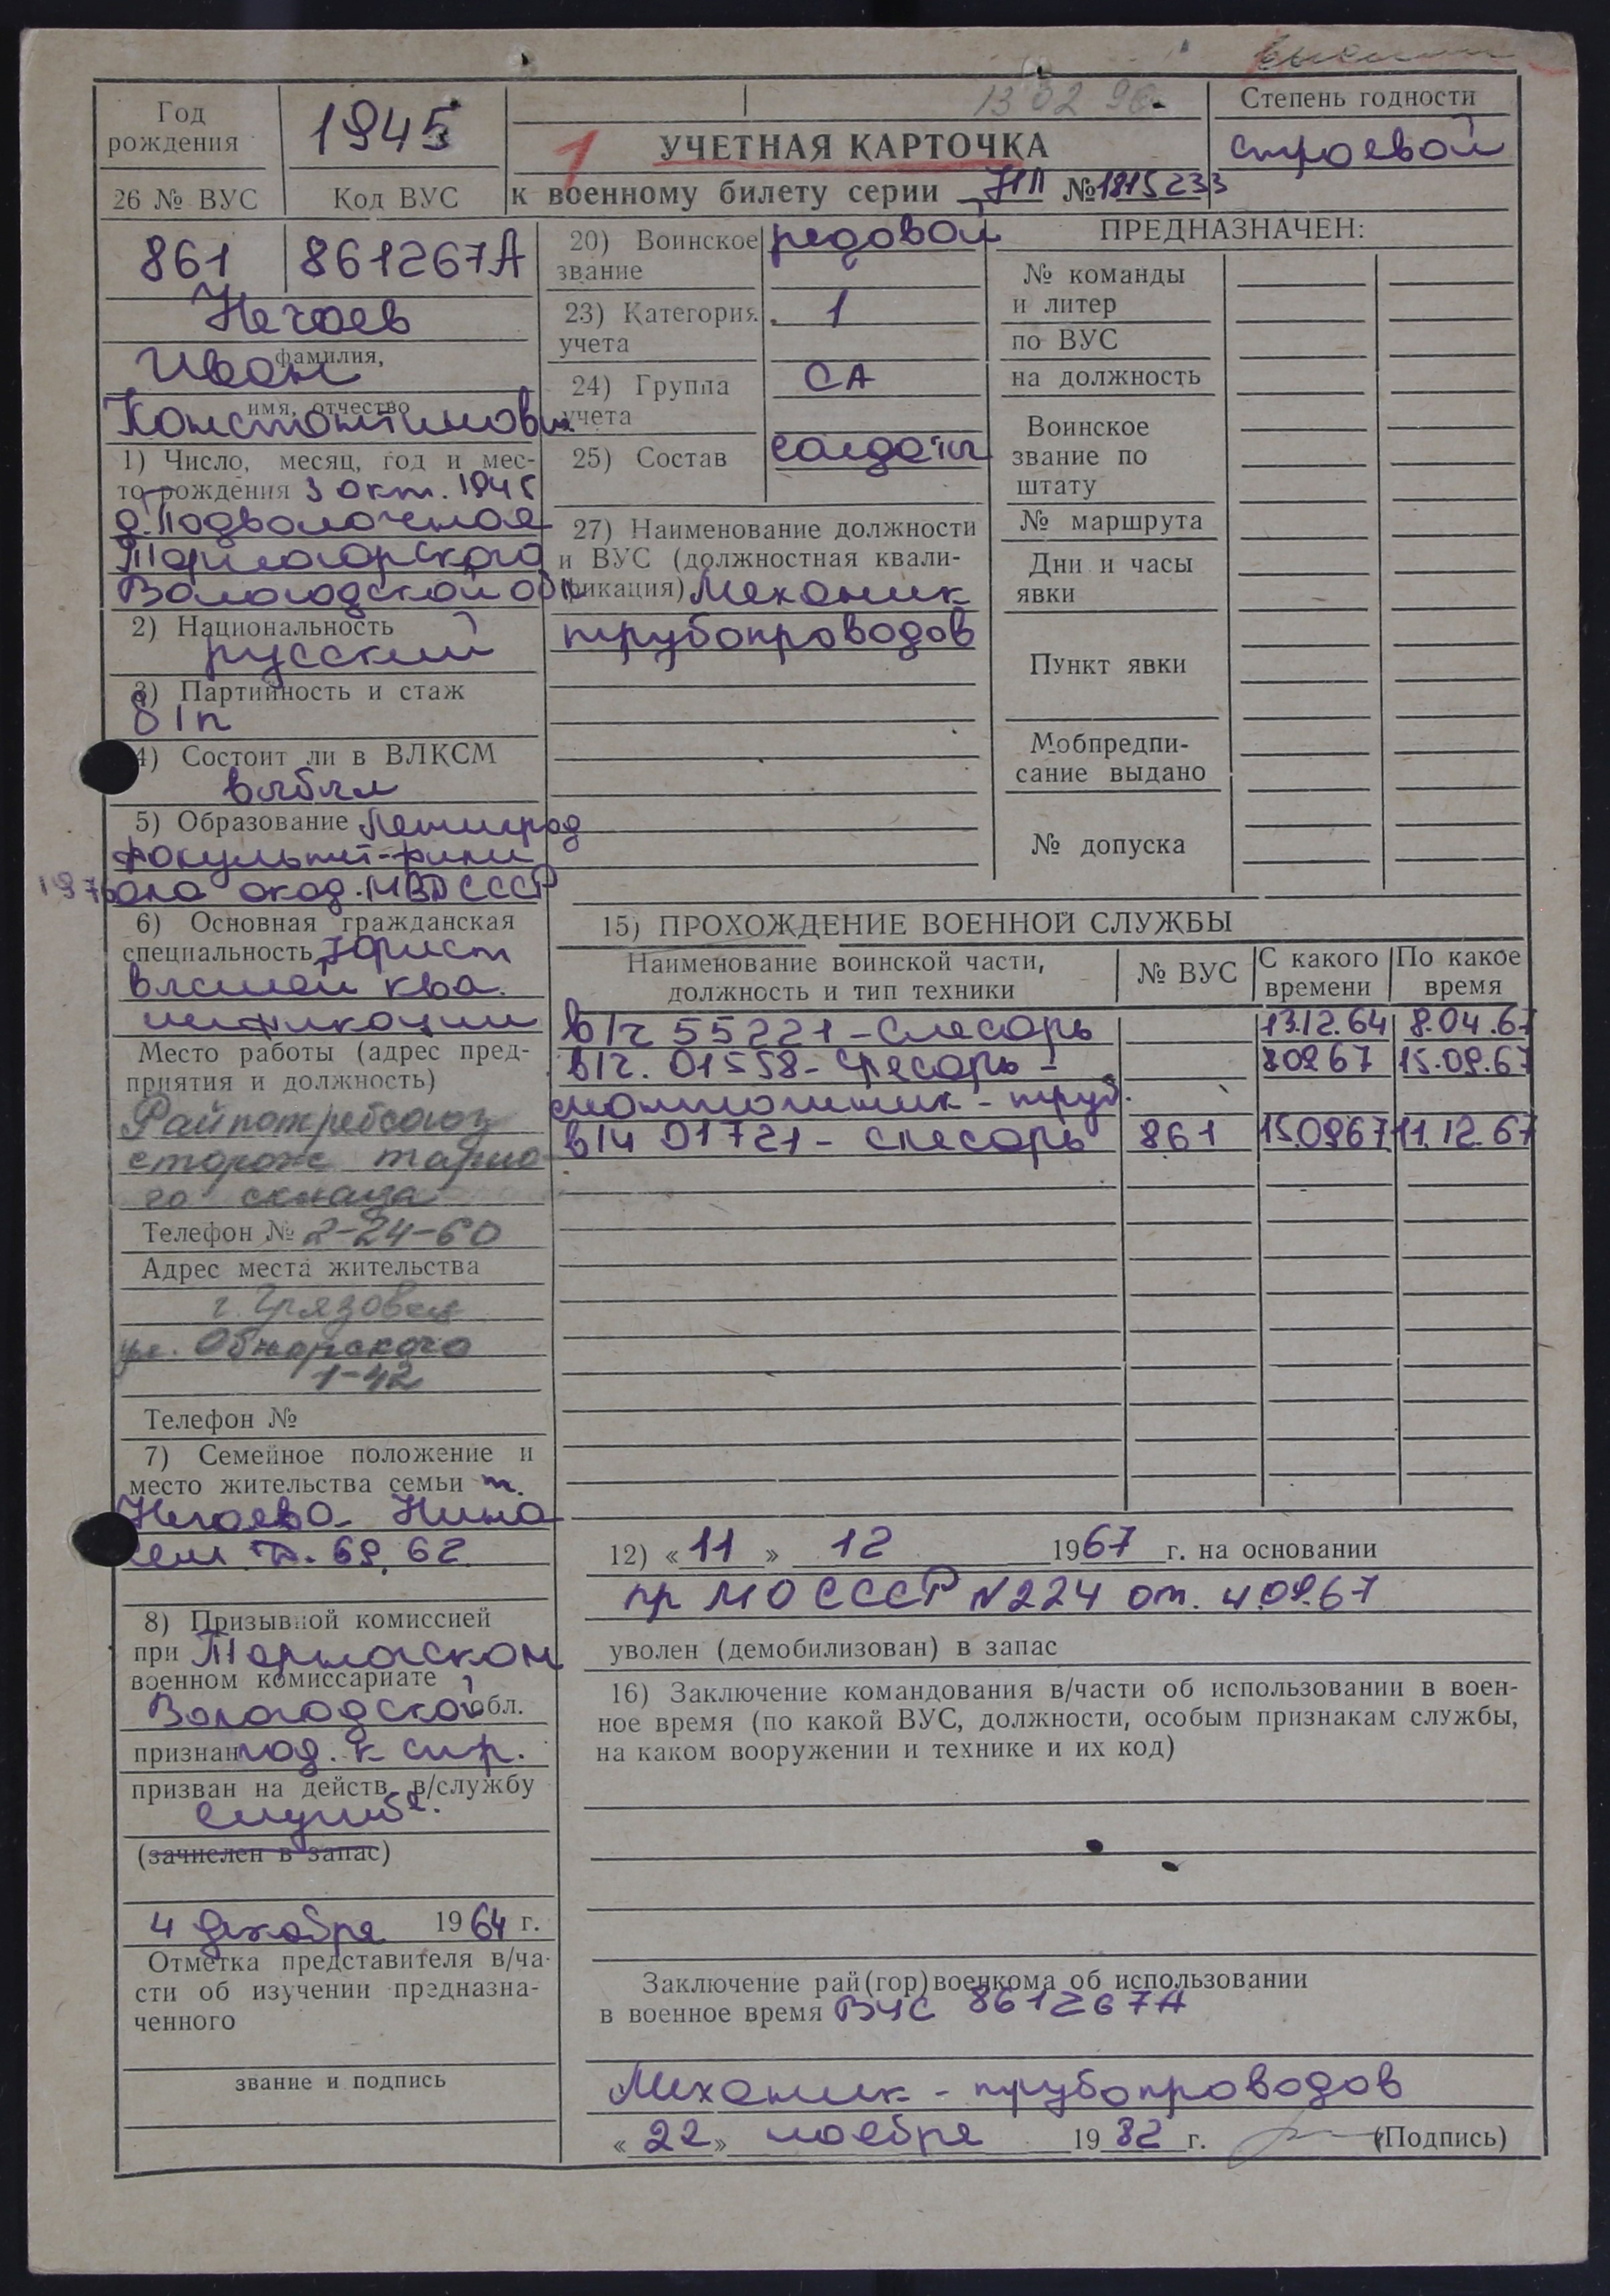 13 02 90
Год
рождения
1945
1
УЧЕТНАЯ КАРТОЧКА
к военному билету серии НП № 1815233
Степень годности
строевой
26 № ВУС
Код ВУС
861
861267А
Нечаев
фамилия,
Иван
имя, отчество
Константинович
1) Число, месяц, год и мес-
то рождения 3 окт. 1945
д. Подволочная
Тарногорского
Вологодской обл
2) Национальность
русский
3) Партийность и стаж
б/п
4) Состоит ли в ВЛКСМ
выбыл
5) Образование Ленинград
факультет-фили
1976 ала акад. МВД СССР
6) Основная гражданская
специальность Юрист
высшей ква
лификации
Место работы (адрес пред-
приятия и должность)
Райпотребсоюз
сторож тарно
го склада
Телефон № 2-24-60
Адрес места жительства
г. Грязовец
ул. Обнорского
1-42
Телефон №
7) Семейное положение и
место жительства семьи ж.
Нечаева Нина
8) Призывной комиссией
при Тарногском
военном комиссариате
Вологодской обл.
признан год. к стр.
призван на действ. в/службу
службе.
(зачислен в запас)
4 декабря 1964 г.
Отметка представителя в/ча-
сти об изучении предназна-
ченного
звание и подпись
20) Воинское
звание
рядовой
23) Категория
учета
1
24) Группа
учета
СА
25) Состав
солдаты
27) Наименование должности
и ВУС (должностная квали-
фикация) Механик
трубопроводов
ПРЕДНАЗНАЧЕН:
№ команды
и литер
по ВУС
на должность
Воинское
звание по
штату
№ маршрута
Дни и часы
явки
Пункт явки
Мобпредпи-
сание выдано
№ допуска
15) ПРОХОЖДЕНИЕ ВОЕННОЙ СЛУЖБЫ
Наименование воинской части,
должность и тип техники
№ ВУС
С какого
времени
По какое
время
в/ч 55221 - слесарь 13.12.64 8.04.67
в/ч. 01558 - слесарь - 80967 15.09.67
монтажник - труб.
в/ч 01721 - слесарь 861 15.0967 11.12.67
12) « 11 » 12 1967 г. на основании
пр МО СССР N224 от. 4.09.67
уволен (демобилизован) в запас
16) Заключение командования в/части об использовании в воен-
ное время (по какой ВУС, должности, особым признакам службы,
на каком вооружении и технике и их код)
Заключение рай(гор)военкома об использовании
в военное время ВУС 861267А
Механик - трубопроводов
« 22 » ноября 1982 г. (Подпись)